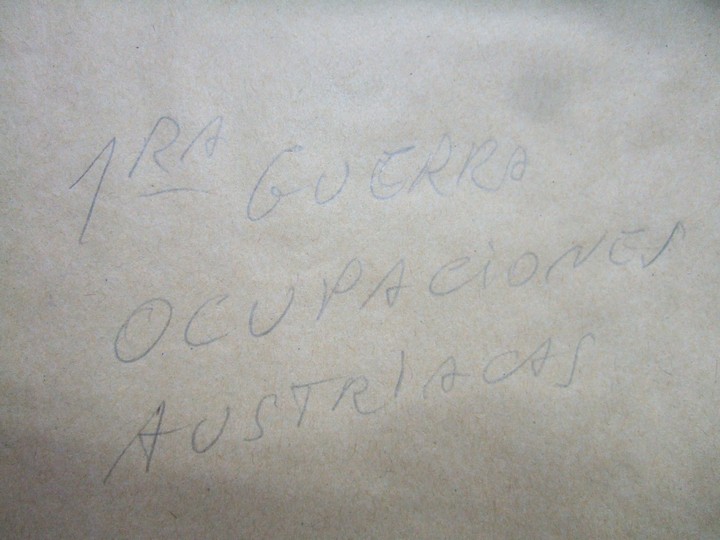 1RA GUERRA
OCUPACIONES
AUSTRIACAS